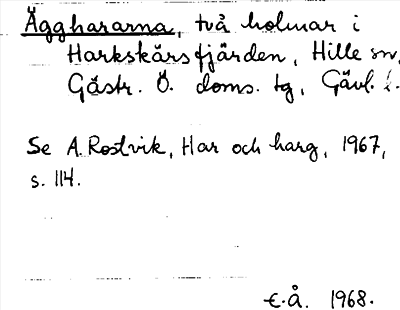 Ägghararna, två holmar i
Harkskärsfjärden, Hille sn,
Gästr. Ö. doms. tg, Gävl. l.
Se A. Rostvik, Har och harg, 1967,
s. 114.
E.Å. 1968.